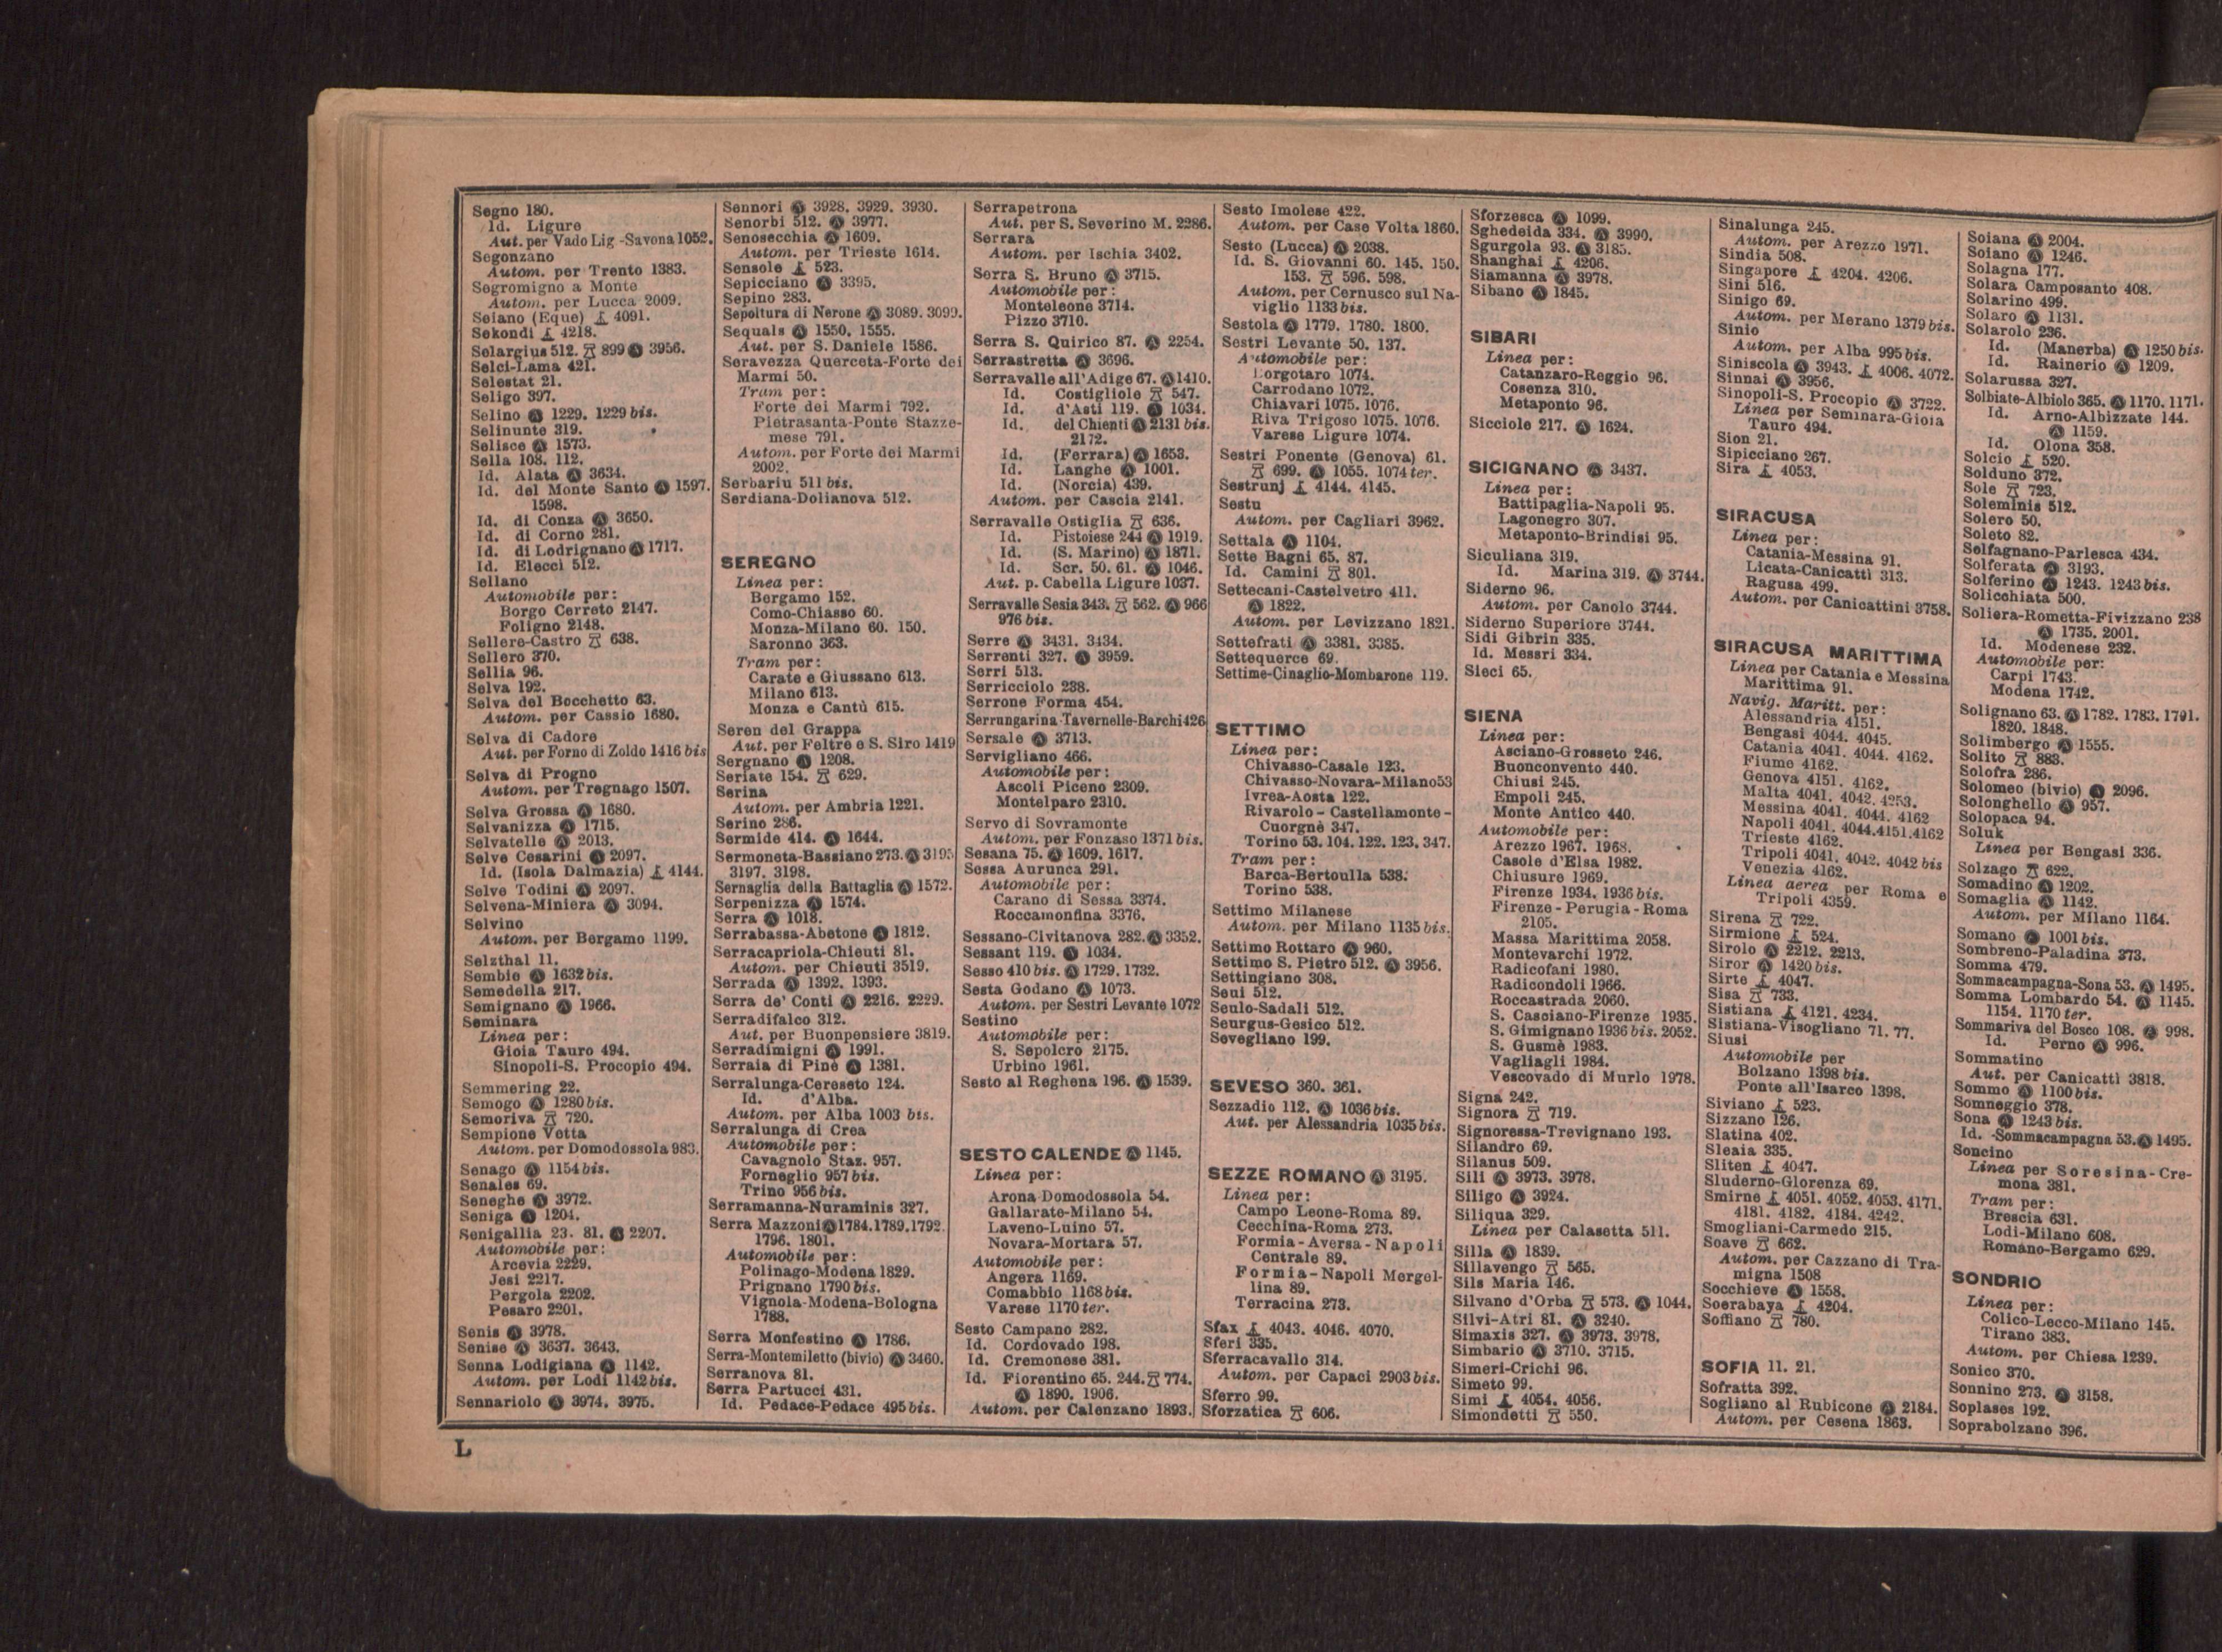 Segno 180.
Id. Ligure
Aut. per Vado Lig-Savona 1052.
Segonzano
Autom. per Trento 1383.
Segromigno a Monte
Autom. per Lucca 2009.
Seiano (Eque) 4091.
Sekondi 4218.
Selargius 512. 899 Ⓐ 3956.
Selci-Lama 421.
Selestat 21.
Seligo 397.
Selino Ⓐ 1229. 1229 bis.
Selinunte 319.
Selisce Ⓐ 1573.
Sella 108. 112.
Id. Alata Ⓐ 3634.
Id. del Monte Santo Ⓐ 1597.
1598.
Id. di Conza Ⓐ 3650.
Id. di Corno 281.
Id. di Lodrignano Ⓐ 1717.
Id. Elecci 512.
Sellano
Automobile per:
Borgo Cerreto 2147.
Foligno 2148.
Sellere-Castro 638.
Sellero 370.
Sellia 96.
Selva 192.
Selva del Bocchetto 63.
Autom. per Cassio 1680.
Selva di Cadore
Aut. per Forno di Zoldo 1416 bis
Selva di Progno
Autom. per Tregnago 1507.
Selva Grossa Ⓐ 1680.
Selvanizza Ⓐ 1715.
Selvatelle Ⓐ 2013.
Selve Cesarini Ⓐ 2097.
Id. (Isola Dalmazia) 4144.
Selve Todini Ⓐ 2097.
Selvena-Miniera Ⓐ 3094.
Selvino
Autom. per Bergamo 1199.
Selzthal 11.
Sembie Ⓐ 1632 bis.
Semedella 217.
Semignano Ⓐ 1966.
Seminara
Linea per:
Gioia Tauro 494.
Sinopoli-S. Procopio 494.
Semmering 22.
Semogo Ⓐ 1280 bis.
Semoriva 720.
Sempione Vetta
Autom. per Domodossola 983.
Senago Ⓐ 1154 bis.
Senales 69.
Seneghe Ⓐ 3972.
Seniga Ⓐ 1204.
Senigallia 23. 81. Ⓐ 2207.
Automobile per:
Arcevia 2229.
Jesi 2217.
Pergola 2202.
Pesaro 2201.
Senis Ⓐ 3978.
Senise Ⓐ 3637. 3643.
Senna Lodigiana Ⓐ 1142.
Autom. per Lodi 1142 bis.
Sennariolo Ⓐ 3974. 3975.
Sennori Ⓐ 3928. 3929. 3930.
Senorbi 512. Ⓐ 3977.
Senosecchia Ⓐ 1609.
Autom. per Trieste 1614.
Sensole 523.
Sepicciano Ⓐ 3395.
Sepino 283.
Sepoltura di Nerone Ⓐ 3089. 3099.
Sequals Ⓐ 1550. 1555.
Aut. per S. Daniele 1586.
Seravezza Querceta-Forte dei
Marmi 50.
Tram per:
Forte dei Marmi 792.
Pietrasanta-Ponte Stazze-
mese 791.
Autom. per Forte dei Marmi
2002.
Serbariu 511 bis.
Serdiana-Dolianova 512.
SEREGNO
Linea per:
Bergamo 152.
Como-Chiasso 60.
Monza-Milano 60. 150.
Saronno 363.
Tram per:
Carate e Giussano 613.
Milano 613.
Monza e Cantù 615.
Seren del Grappa
Aut. per Feltre e S. Siro 1419
Sergnano Ⓐ 1208.
Seriate 154. 629.
Serina
Autom. per Ambria 1221.
Serino 286.
Sermide 414. Ⓐ 1644.
Sermoneta-Bassiano 273. Ⓐ 3195
3197. 3198.
Sernaglia della Battaglia Ⓐ 1572.
Serpenizza Ⓐ 1574.
Serra Ⓐ 1018.
Serrabassa-Abetone Ⓐ 1812.
Serracapriola-Chieuti 81.
Autom. per Chieuti 3519.
Serrada Ⓐ 1392. 1393.
Serra de' Conti Ⓐ 2216. 2229.
Serradifalco 312.
Aut. per Buonpensiere 3819.
Serradimigni Ⓐ 1991.
Serraia di Pinè Ⓐ 1381.
Serralunga-Cereseto 124.
Id. d'Alba.
Autom. per Alba 1003 bis.
Serralunga di Crea
Automobile per:
Cavagnolo Staz. 957.
Forneglio 957 bis.
Trino 956 bis.
Serramanna-Nuraminis 327.
Serra Mazzoni Ⓐ 1784. 1789. 1792.
1796. 1801.
Automobile per:
Polinago-Modena 1829.
Prignano 1790 bis.
Vignola-Modena-Bologna
1788.
Serra Monfestino Ⓐ 1786.
Serra-Montemiletto (bivio) Ⓐ 3460.
Serranova 81.
Serra Partucci 431.
Id. Pedace-Pedace 495 bis.
Serrapetrona
Aut. per S. Severino M. 2286.
Serrara
Autom. per Ischia 3402.
Serra S. Bruno Ⓐ 3715.
Automobile per:
Monteleone 3714.
Pizzo 3710.
Serra S. Quirico 87. Ⓐ 2254.
Serrastretta Ⓐ 3696.
Serravalle all'Adige 67. Ⓐ 1410.
Id. Costigliole 547.
Id. d'Asti 119. Ⓐ 1034.
Id. del Chienti Ⓐ 2131 bis.
2172.
Id. (Ferrara) Ⓐ 1653.
Id. Langhe Ⓐ 1001.
Id. (Norcia) 439.
Autom. per Cascia 2141.
Serravalle Ostiglia 636.
Id. Pistoiese 244 Ⓐ 1919.
Id. (S. Marino) Ⓐ 1871.
Id. Scr. 50. 61. Ⓐ 1046.
Aut. p. Cabella Ligure 1037.
Serravalle Sesia 343. 562. Ⓐ 966
976 bis.
Serre Ⓐ 3431. 3434.
Serrenti 327. Ⓐ 3959.
Serri 513.
Serricciolo 238.
Serrone Forma 454.
Serrungarina-Tavernelle-Barchi 426
Sersale Ⓐ 3713.
Servigliano 466.
Automobile per:
Ascoli Piceno 2309.
Montelparo 2310.
Servo di Sovramonte
Autom. per Fonzaso 1371 bis.
Sesana 75. Ⓐ 1609. 1617.
Sessa Aurunca 291.
Automobile per:
Carano di Sessa 3374.
Roccamonfina 3376.
Sessano-Civitanova 282. Ⓐ 3352.
Sessant 119. Ⓐ 1034.
Sesso 410 bis. Ⓐ 1729. 1732.
Sesta Godano Ⓐ 1073.
Autom. per Sestri Levante 1072
Sestino
Automobile per:
S. Sepolcro 2175.
Urbino 1961.
Sesto al Reghena 196. Ⓐ 1539.
SESTO CALENDE Ⓐ 1145.
Linea per:
Arona-Domodossola 54.
Gallarate-Milano 54.
Laveno-Luino 57.
Novara-Mortara 57.
Automobile per:
Angera 1169.
Comabbio 1168 bis.
Varese 1170 ter.
Sesto Campano 282.
Id. Cordovado 198.
Id. Cremonese 381.
Id. Fiorentino 65. 244. 774.
Ⓐ 1890. 1906.
Autom. per Calenzano 1893.
Sesto Imolese 422.
Autom. per Case Volta 1860.
Sesto (Lucca) Ⓐ 2038.
Id. S. Giovanni 60. 145. 150.
153. 596. 598.
Autom. per Cernusco sul Na-
viglio 1133 bis.
Sestola Ⓐ 1779. 1780. 1800.
Sestri Levante 50. 137.
Automobile per:
Borgotaro 1074.
Carrodano 1072.
Chiavari 1075. 1076.
Riva Trigoso 1075. 1076.
Varese Ligure 1074.
Sestri Ponente (Genova) 61.
699. Ⓐ 1055. 1074 ter.
Sestrunj 4144. 4145.
Sestu
Autom. per Cagliari 3962.
Settala Ⓐ 1104.
Sette Bagni 65. 87.
Id. Camini 801.
Settecani-Castelvetro 411.
Ⓐ 1822.
Autom. per Levizzano 1821.
Settefrati Ⓐ 3381. 3385.
Settequerce 69.
Settime-Cinaglio-Mombarone 119.
SETTIMO
Linea per:
Chivasso-Casale 123.
Chivasso-Novara-Milano 53
Ivrea-Aosta 122.
Rivarolo-Castellamonte-
Cuorgnè 347.
Torino 53. 104. 122. 123. 347.
Tram per:
Barca-Bertoulla 538.
Torino 538.
Settimo Milanese
Autom. per Milano 1135 bis.
Settimo Rottaro Ⓐ 960.
Settimo S. Pietro 512. Ⓐ 3956.
Settingiano 308.
Seui 512.
Seulo-Sadali 512.
Seurgus-Gesico 512.
Sevegliano 199.
SEVESO 360. 361.
Sezzadio 112. Ⓐ 1036 bis.
Aut. per Alessandria 1035 bis.
SEZZE ROMANO Ⓐ 3195.
Linea per:
Campo Leone-Roma 89.
Cecchina-Roma 273.
Formia-Aversa-Napoli
Centrale 89.
Formia-Napoli Mergel-
lina 89.
Terracina 273.
Sfax 4043. 4046. 4070.
Sferi 335.
Sferracavallo 314.
Autom. per Capaci 2903 bis.
Sferro 99.
Sforzatica 606.
Sforzesca Ⓐ 1099.
Sghedeida 334. Ⓐ 3990.
Sgurgola 93. Ⓐ 3185.
Shanghai 4206.
Siamanna Ⓐ 3978.
Sibano Ⓐ 1845.
SIBARI
Linea per:
Catanzaro-Reggio 96.
Cosenza 310.
Metaponto 96.
Sicciole 217. Ⓐ 1624.
SICIGNANO Ⓐ 3437.
Linea per:
Battipaglia-Napoli 95.
Lagonegro 307.
Metaponto-Brindisi 95.
Siculiana 319.
Id. Marina 319. Ⓐ 3744.
Siderno 96.
Autom. per Canolo 3744.
Siderno Superiore 3744.
Sidi Gibrin 335.
Id. Messri 334.
Sieci 65.
SIENA
Linea per:
Asciano-Grosseto 246.
Buonconvento 440.
Chiusi 245.
Empoli 245.
Monte Antico 440.
Automobile per:
Arezzo 1967. 1968.
Casole d'Elsa 1982.
Chiusure 1969.
Firenze 1934. 1936 bis.
Firenze-Perugia-Roma
2105.
Massa Marittima 2058.
Montevarchi 1972.
Radicofani 1980.
Radicondoli 1966.
Roccastrada 2060.
S. Casciano-Firenze 1935.
S. Gimignano 1936 bis. 2052.
S. Gusmè 1983.
Vagliagli 1984.
Vescovado di Murlo 1978.
Signa 242.
Signora 719.
Signoressa-Trevignano 193.
Silandro 69.
Silanus 509.
Sili Ⓐ 3973. 3978.
Siligo Ⓐ 3924.
Siliqua 329.
Linea per Calasetta 511.
Silla Ⓐ 1839.
Sillavengo 565.
Sils Maria 146.
Silvano d'Orba 573. Ⓐ 1044.
Silvi-Atri 81. Ⓐ 3240.
Simaxis 327. Ⓐ 3973. 3978.
Simbario Ⓐ 3710. 3715.
Simeri-Crichi 96.
Simeto 99.
Simi 4054. 4056.
Simondetti 550.
Sinalunga 245.
Autom. per Arezzo 1971.
Sindia 508.
Singapore 4204. 4206.
Sini 516.
Sinigo 69.
Autom. per Merano 1379 bis.
Sinio
Autom. per Alba 995 bis.
Siniscola Ⓐ 3943. 4006. 4072.
Sinnai Ⓐ 3956.
Sinopoli-S. Procopio Ⓐ 3722.
Linea per Seminara-Gioia
Tauro 494.
Sion 21.
Sipicciano 267.
Sira 4053.
SIRACUSA
Linea per:
Catania-Messina 91.
Licata-Canicattì 313.
Ragusa 499.
Autom. per Canicattini 3758.
SIRACUSA MARITTIMA
Linea per Catania e Messina
Marittima 91.
Navig. Maritt. per:
Alessandria 4151.
Bengasi 4044. 4045.
Catania 4041. 4044. 4162.
Fiume 4162.
Genova 4151. 4162.
Malta 4041. 4042. 4253.
Messina 4041. 4044. 4162
Napoli 4041. 4044. 4151. 4162
Trieste 4162.
Tripoli 4041. 4042. 4042 bis
Venezia 4162.
Linea aerea per Roma e
Tripoli 4359.
Sirena 722.
Sirmione 524.
Sirolo Ⓐ 2212. 2213.
Siror Ⓐ 1420 bis.
Sirte 4047.
Sisa 733.
Sistiana 4121. 4234.
Sistiana-Visogliano 71. 77.
Siusi
Automobile per
Bolzano 1398 bis.
Ponte all'Isarco 1398.
Siviano 523.
Sizzano 126.
Slatina 402.
Sleaia 335.
Sliten 4047.
Sluderno-Glorenza 69.
Smirne 4051. 4052. 4053. 4171.
4181. 4182. 4184. 4242.
Smogliani-Carmedo 215.
Soave 662.
Autom. per Cazzano di Tra-
migna 1508
Socchieve Ⓐ 1558.
Soerabaya 4204.
Soffiano 780.
SOFIA 11. 21.
Sofratta 392.
Sogliano al Rubicone Ⓐ 2184.
Autom. per Cesena 1863.
Soiana Ⓐ 2004.
Soiano Ⓐ 1246.
Solagna 177.
Solara Camposanto 408.
Solarino 499.
Solaro Ⓐ 1131.
Solarolo 236.
Id. (Manerba) Ⓐ 1250 bis.
Id. Rainerio Ⓐ 1209.
Solarussa 327.
Solbiate-Albiolo 365. Ⓐ 1170. 1171.
Id. Arno-Albizzate 144.
Ⓐ 1159.
Id. Olona 358.
Solcio 520.
Solduno 372.
Sole 723.
Soleminis 512.
Solero 50.
Soleto 82.
Solfagnano-Parlesca 434.
Solferata Ⓐ 3193.
Solferino Ⓐ 1243. 1243 bis.
Solicchiata 500.
Soliera-Rometta-Fivizzano 238
Ⓐ 1735. 2001.
Id. Modenese 232.
Automobile per:
Carpi 1743.
Modena 1742.
Solignano 63. Ⓐ 1782. 1783. 1791.
1820. 1848.
Solimbergo Ⓐ 1555.
Solito 883.
Solofra 286.
Solomeo (bivio) Ⓐ 2096.
Solonghello Ⓐ 957.
Solopaca 94.
Soluk
Linea per Bengasi 336.
Solzago 622.
Somadino Ⓐ 1202.
Somaglia Ⓐ 1142.
Autom. per Milano 1164.
Somano Ⓐ 1001 bis.
Sombreno-Paladina 373.
Somma 479.
Sommacampagna-Sona 53. Ⓐ 1495.
Somma Lombardo 54. Ⓐ 1145.
1154. 1170 ter.
Sommariva del Bosco 108. Ⓐ 998.
Id. Perno Ⓐ 996.
Sommatino
Aut. per Canicattì 3818.
Sommo Ⓐ 1100 bis.
Somneggio 378.
Sona Ⓐ 1243 bis.
Id.-Sommacampagna 53. Ⓐ 1495.
Soncino
Linea per Soresina-Cre-
mona 381.
Tram per:
Brescia 631.
Lodi-Milano 608.
Romano-Bergamo 629.
SONDRIO
Linea per:
Colico-Lecco-Milano 145.
Tirano 383.
Autom. per Chiesa 1239.
Sonico 370.
Sonnino 273. Ⓐ 3158.
Soplases 192.
Soprabolzano 396.
L